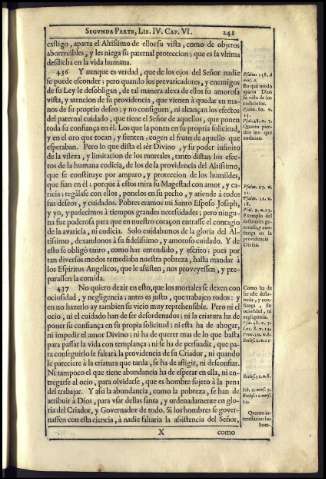 SEGUNDA PARTE, LIB. IV. CAP. VI.
241
castigo, aparta el Altisimo de ellos la vista, como de objetos
aborrecibles, y les niega su paternal proteccion; que es la vltima
desdicha en la vida humana.
436 Y aunque es verdad, que de los ojos del Señor nadie
se puede esconder; pero quando los prevaricadores, y enemigos
de su Ley le desobligan, de tal manera aleva de ellos su amorosa
vista, y atencion de su providencia, que vienen à quedar en ma-
nos de su proprio deseo: y no consiguen, ni alcançan los efectos
del paternal cuidado, que tiene el Señor de aquellos, que ponen
toda su confiança en èl. Los que la ponen en su propria solicitud,
y en el oro que tocan, y sienten, cogen el fruto de aquello que
esperaban. Pero lo que dista el sèr Divino, y su poder infinito
de la vileza, y limitacion de los mortales, tanto distan los efec-
tos de la humana codicia, de los de la providencia del Altisimo,
que se constituye por amparo, y proteccion de los humildes,
que fian en el; porque à estos mira su Magestad con amor, y ca-
ricia: regalase con ellos, ponelos en su pecho, y atiende à todos
sus deseos, y cuidados. Pobres eramos mi Santo Esposo Joseph,
y yo, y padecimos à tiempos grandes necesidades; pero ningu-
na fue poderosa para que en nuestro coraçon entrasse el contagio
de la avaricia, ni codicia. Solo cuidabamos de la gloria del Al-
tisimo, dexandonos à su fidelissimo, y amoroso cuidado. Y de
esto se obligò tanto, como has entendido, y escrito; pues por
tan diversos modos remediaba nuestra pobreza, hasta mandar à
los Espiritus Angelicos, que le assisten, nos proveyessen, y pre-
parassen la comida.
437 No quiero dezir en esto, que los mortales se dexen con
ociosidad, y negligencia; antes es justo, que trabajen todos: y
en no hazerlo ay tambien su vicio muy reprehensible. Pero ni el
ocio, ni el cuidado han de ser desordenados; ni la criatura ha de
poner su confiança en su propria solicitud; ni esta ha de ahogar,
ni impedir el amor Divino; ni ha de querer mas de lo que basta
para passar la vida con templança; ni se ha de persuadir, que pa-
ra conseguirlo le faltarà la providencia de su Criador, ni quando
le pareciere à la criatura que tarda, se ha de afligir, ni desconfiar.
Ni tampoco el que tiene abundancia ha de esperar en ella, ni en-
tregarse al ocio, para olvidarse, que es hombre sujeto à la pena
del trabajar. Y assi la abundancia, como la pobreza, se han de
atribuir à Dios, para vsar dellas santa, y ordenadamente en glo-
ria del Criador, y Governador de todo. Si los hombres se gover-
nassen con esta ciencia, à nadie faltaria la assistencia del Señor,
X
como